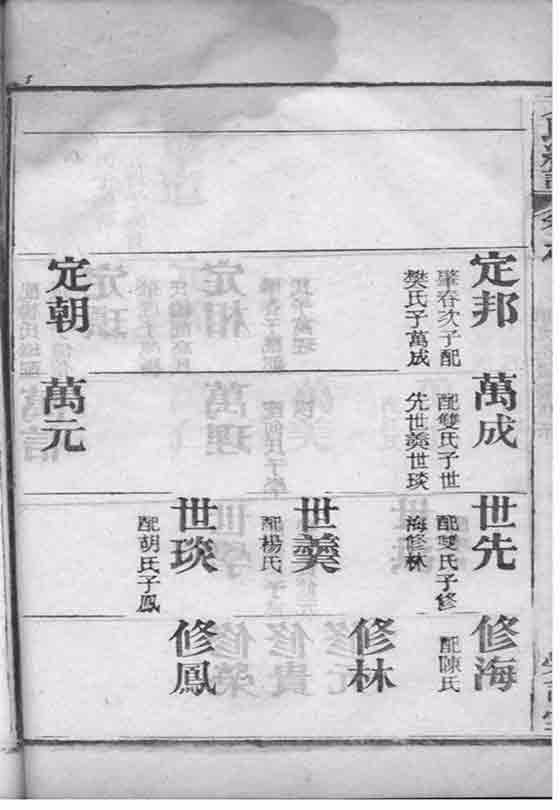 定邦
肇春次子配
樊氏子萬成
定朝
萬成
配雙氏子世
先世羮世琰
萬元
世先
配雙氏子修
海修林
世羮
配楊氏
世琰
配胡氏子鳳
修海
配陳氏
修林
修鳳